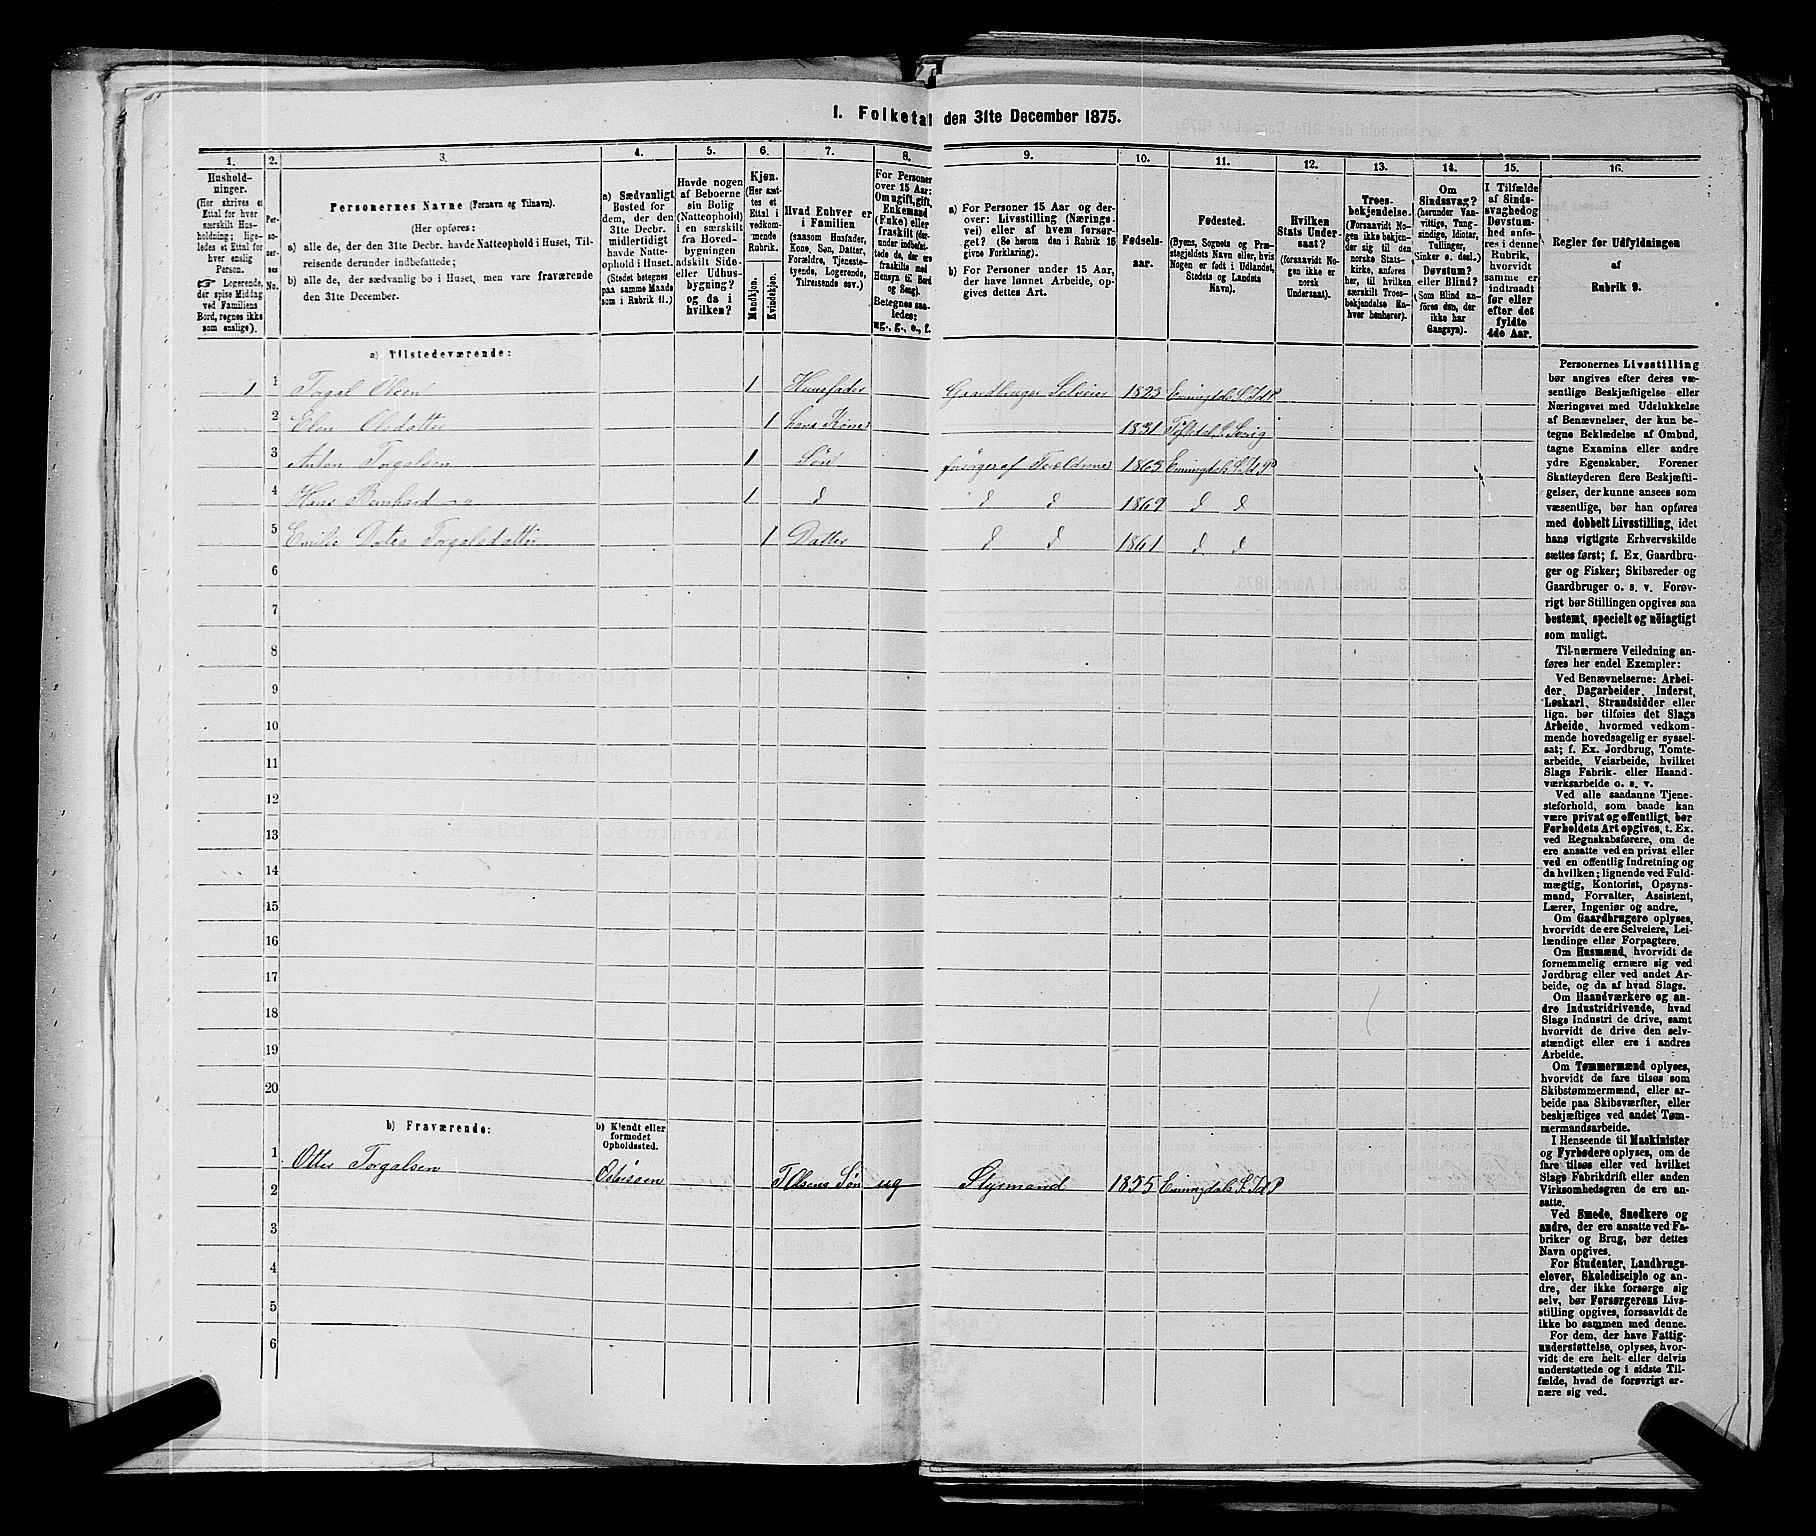 1. Folketal den 31te December 1875.
1.
2.
3.
4.
5.
6.
7.
8.
9.
10.
11.
12.
13.
14.
15.
16.
Husholdninger.
(Her skrives et
Ettal for hver
særskilt Husholdning; ligeledes
et Ettal for
hver enslig
Person.
☞ Logerende,
der spise Middag
ved Familiens
Bord, regnes ikke
som enslige).
Personernes
No.
Personernes Navne (Fornavn og Tilnavn).
(Her opføres:
a) alle de, der den 31te Decbr. havde Natteophold i Huset, Tilreisende
derunder indbefattede;
b) alle de, der sædvanlig bo i Huset, men vare fraværende
den 31te December.
a) Sædvanligt
Bosted for
dem, der den
31te Decbr.
midlertidigt
havde Natteophold
i Huset.
(Stedet betegnes
paa samme Maade
som i Rubrik 11.)
Havde nogen
af Beboerne
sin Bolig
(Natteophold)
i en særskilt
fra Hovedbygningen
adskilt Side-
eller Udhusbygning?
og da i
hvilken?
Kjøn.
(Her sættes
et
Ettal i
vedkommende
Rubrik.
Mandkjøn.
Kvindekjøn.
Hvad Enhver er
i Familien
(saasom Husfader,
Kone, Søn, Datter,
Forældre, Tjenestetyende,
Logerende,
Tilreisende osv.)
For Personer
over 15 Aar:
Om ugift, gift,
Enkemand
(Enke) eller
fraskilt (derunder
indbefattede
de, der ere
fraskilte med
Hensyn til Bord
og Seng).
Betegnes saaledes:
ug., g., e., f.
a) For Personer 15 Aar og derover:
Livsstilling (Næringsvei)
eller af hvem forsørget?
(Se herom den i Rubrik 16
givne Forklaring).
b) For Personer under 15 Aar,
der have lønnet Arbeide, opgives
dettes Art.
Fødselsaar.
Fødested.
(Byens, Sognets og Præstegjeldets
Navn eller, hvis
Nogen er født i Udlandet,
Stedets og Landets
Navn).
Hvilken
Stats Undersaat?
(forsaavidt Nogen
ikke er
norsk
Undersaat).
Troesbekjendelse.
(Forsaavidt Nogen
ikke bekjender
sig til den
norske Statskirke,
anføres
her, til hvilken
særskilt Troesbekjendelse
Enhver
henhører).
Om
Sindssvag?
(herunder Vanvittige,
Tungsindige,
Idioter,
Tullinger,
Sinker o. desl.).
Døvstum?
eller Blind?
(Som Blind anføres
den, der
ikke har
Gangsyn).
I Tilfælde
af Sindssvaghed
og
Døvstumhed
anføres
i denne
Rubrik,
hvorvidt
samme er
indtraadt
før eller
efter det
fyldte
4de Aar.
Regler for Udfyldningen
af
Rubrik 9.
a) Tilstedeværende:
1 1 Torgal Olsen 1 Huusfader Gaardbruger Selveier 1823 Enningdals S. Id P
2 Elen Olsdatter 1 hans Kone 1831
3 Anton Torgalsen 1 Søn forsørges af Forældrene 1863 Enningdals S. Id P
4 Hans Bernhard —"— 1 d d d 1869 d d
5 Emilie Torgalsdatter 1 Datter d d 1861 d d
6
7
8
9
10
11
12
13
14
15
16
17
18
19
20
b) Fraværende:
b) Kjendt eller
formodet
Opholdssted.
1
Otter Torgalsen T Olsens Søn ug Styrmand 1855 Enningdals S. Id P
2
3
4
5
6
Personernes Livsstilling
bør angives efter deres væsentlige
Beskjæftigelse eller
Næringsvei med Udelukkelse
af Benævnelser, der kun betegne
Beklædelse af Ombud,
tagne Examina eller andre
ydre Egenskaber. Forener
Skatteyderen flere Beskjæftigelser,
der kunne ansees som
væsentlige, bør han opføres
med dobbelt Livsstilling, idet
hans vigtigste Erhvervskilde
sættes først; f. Ex. Gaardbruger
og Fisker; Skibsreder og
Gaardbruger o. s. v. Forøvrigt
bør Stillingen opgives saa
bestemt, specielt og nøiagtigt
som muligt.
Til nærmere Veiledning anføres
her endel Exempler:
Ved Benævnelserne: Arbeider,
Dagarbeider, Inderst,
Løskarl, Strandsidder eller
lign. bør tilføies det Slags
Arbeide, hvormed vedkommende
hovedsagelig er sysselsat;
f. Ex. Jordbrug, Tomtearbeide,
Veiarbeide, hvilket
Slags Fabrik- eller Haandværksarbeide
o. s. v.
Ved alle saadanne Tjenesteforhold,
som baade kan
være privat og offentligt, bør
Forholdets Art opgives, t. Ex.
ved Regnskabsførere, om de
ere ansatte ved en privat eller
ved en offentlig Indretning og
da hvilken; lignende ved Fuldmægtig,
Kontorist, Opsynsmand,
Forvalter, Assistent,
Lærer, Ingeniør og andre.
Om Gaardbrugere oplyses,
hvorvidt de ere Selveiere, Leilændinge
eller Forpagtere.
Om Husmænd, hvorvidt de
fornemmelig ernære sig ved
Jordbrug eller ved andet Arbeide,
og da af hvad Slags.
Om Haandværkere og andre
Industridrivende, hvad
Slags Industri de drive, samt
hvorvidt de drive den selvstændigt
eller ere i andres
Arbeide.
Om Tømmermænd oplyses,
hvorvidt de fare tilsøs som
Skibstømmermænd, eller arbeide
paa Skibsværfter, eller
beskjæftiges ved andet Tømmermandsarbeide.
I Henseende til Maskinister
og Fyrbødere oplyses, om de
fare tilsøs eller ved hvilket
Slags Fabrikdrift eller anden
Virksomhedsgren de ere ansatte.
Ved Smede, Snedkere og
andre, der ere ansatte ved Fabriker
og Brug, bør dettes
Navn opgives.
For Studenter, Landbrugselever,
Skoledisciple og andre,
der ikke forsørge sig
selv, bør Forsørgerens Livsstilling
opgives, forsaavidt de
ikke bo sammen med denne.
For dem, der have Fattigunderstøttelse,
oplyses, hvorvidt
de ere helt eller delvis
understøttede og i sidste Tilfælde,
hvad de forøvrigt ernære
sig ved.